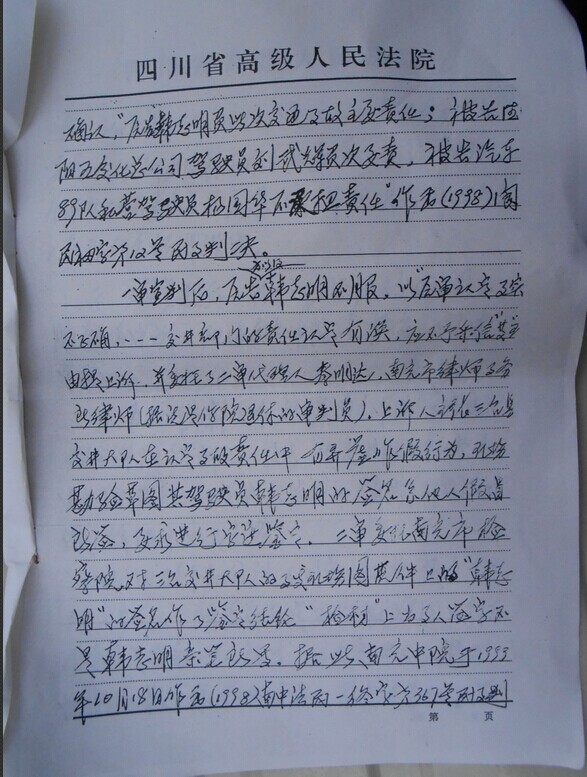 四川省高级人民法院
确认，"原告韩志明负此次交通事故主要责任；被告
阳五交化总公司驾驶员刘武辉负次要责，被告汽车
89队私营驾驶员杨国华不承担责任"作出(1998)阆
民初字第12号民事判决。
一审宣判后，原告韩志明不服，以"原审认定事实
不正确，---交警部门的责任认定有误，应不予采信"为
由提上诉，并委托了二审代理人李明达，南充市律师事务
所律师(据说是法院退休的审判员)。上诉人
交警大队在认定事故责任中有弄虚作假行为，现场
勘验草图其驾驶员韩志明的签名系他人假冒
，要求进行字迹鉴定。二审委托南充市检
察院对交警大队的事故现场图 上的"韩志
明"的签名作了鉴定结论"检材"上当事人签字不
是韩志明亲笔所写。据此，南充中院于1999
年10月18日作出(1998)南中法民一终字第367号民事判
第 页